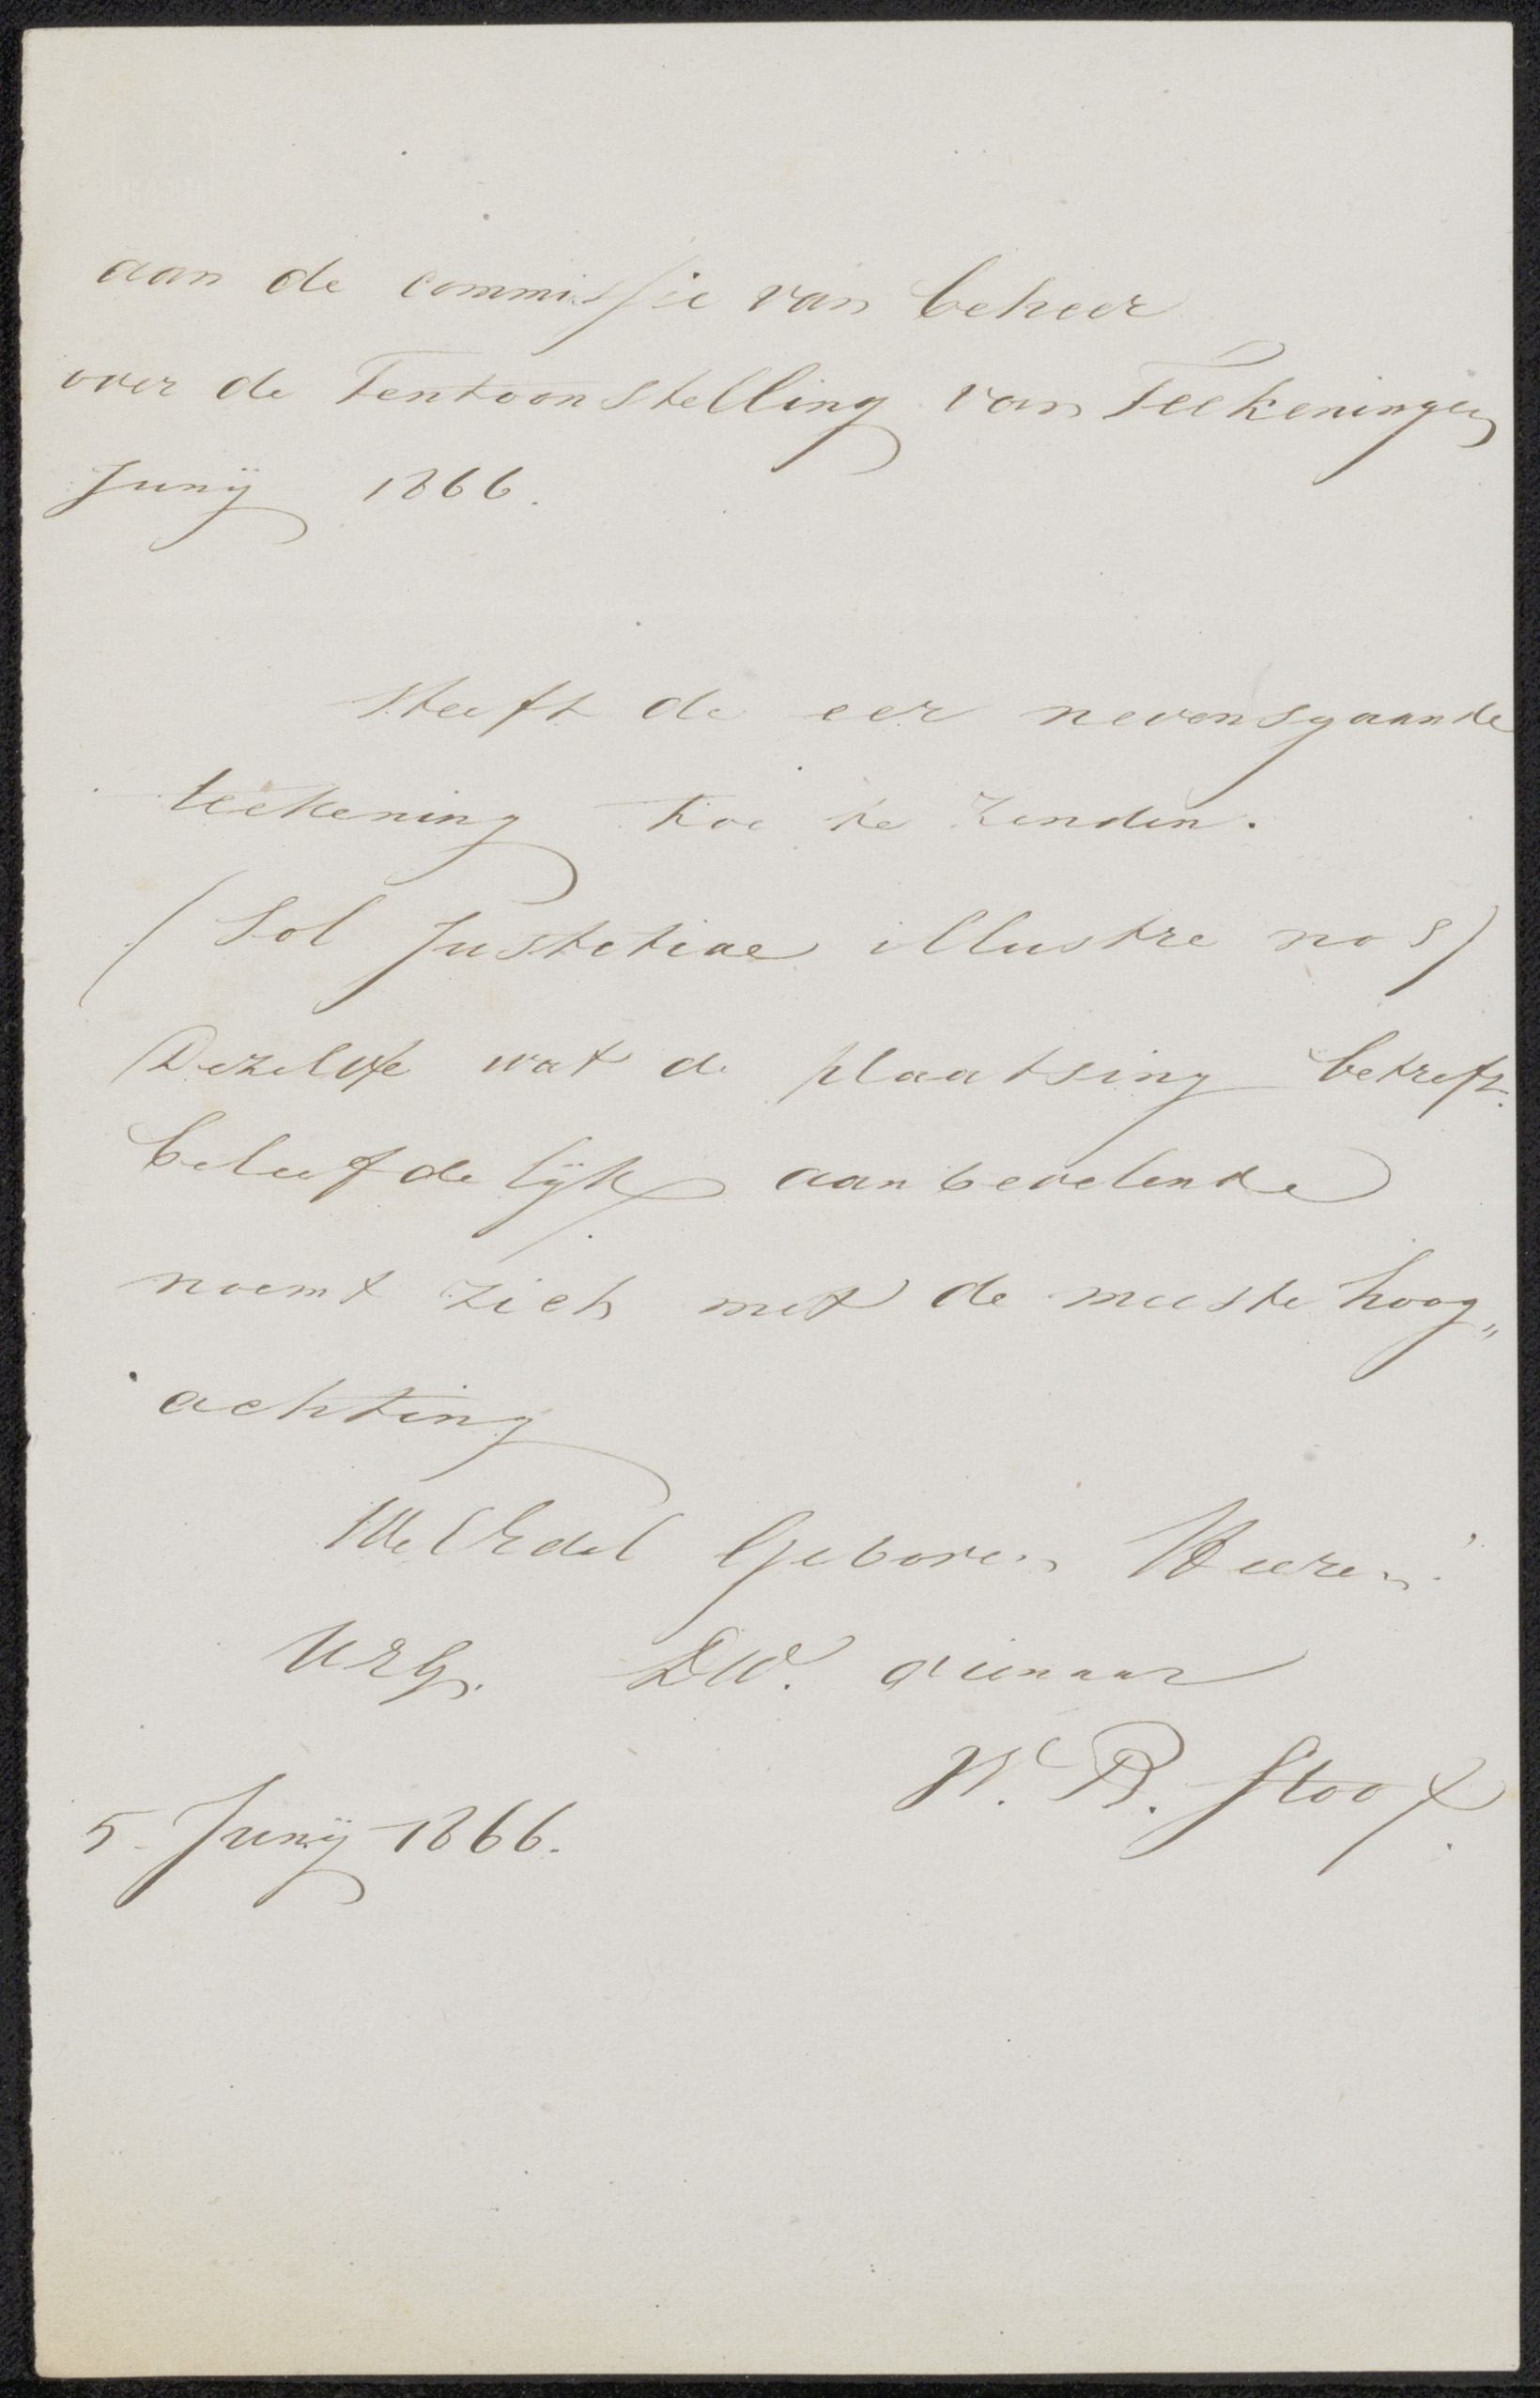 aan de commissie van beheer
over de Tentoonstelling van Teekeningen
Junÿ 1866.
Heeft de eer nevensgaande
teekening toe te zenden.
(Sol Justitiae illustre nos)
Dezelve wat de plaatsing betreft.
beleefdelÿk aanbevelende
noemt zich met de meeste hoog„
achting
WelEdel Geboren Heeren!
UEG. DW. dienaar
W. B. Stoof.
5 Junÿ 1866.